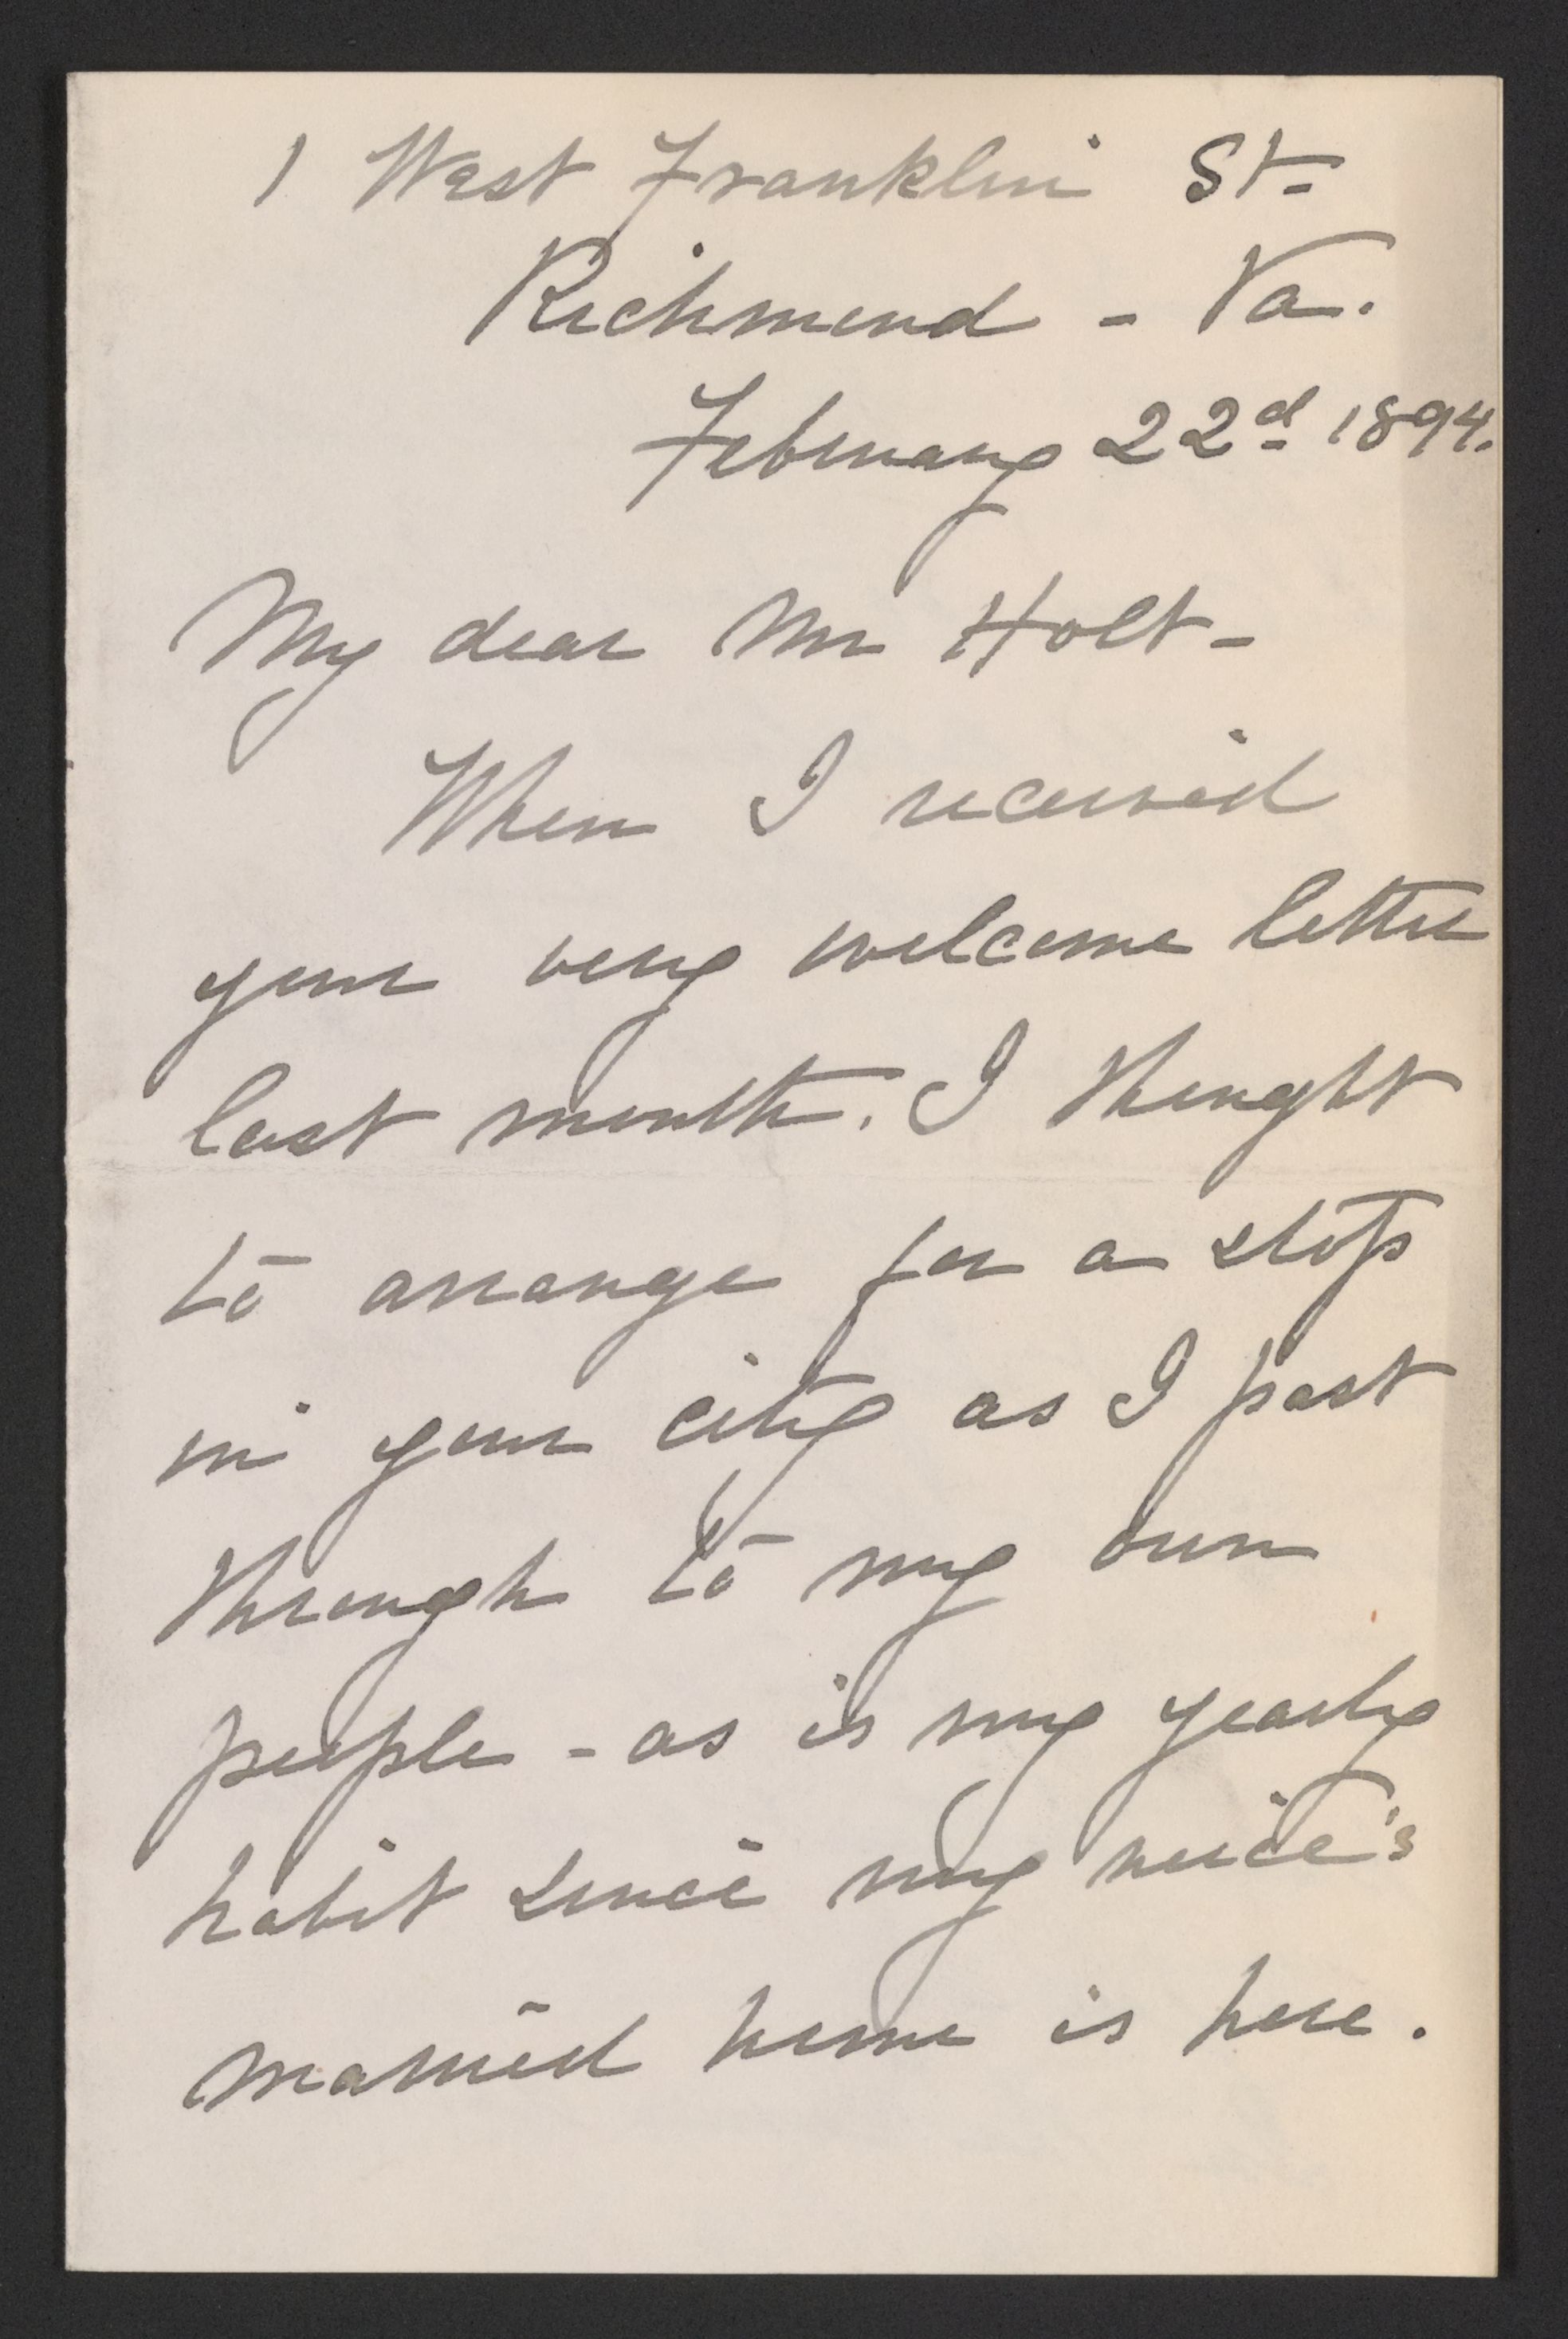 1 West Franklin St.
Richmond - Va.
February 22d 1894.
My dear Mr Holt -
When I received
your very welcome letter
last month. I thought
to arrange for a stop
in your city as I past
through to my own
people - as is my yearly
habit since my neice's
married home is here.